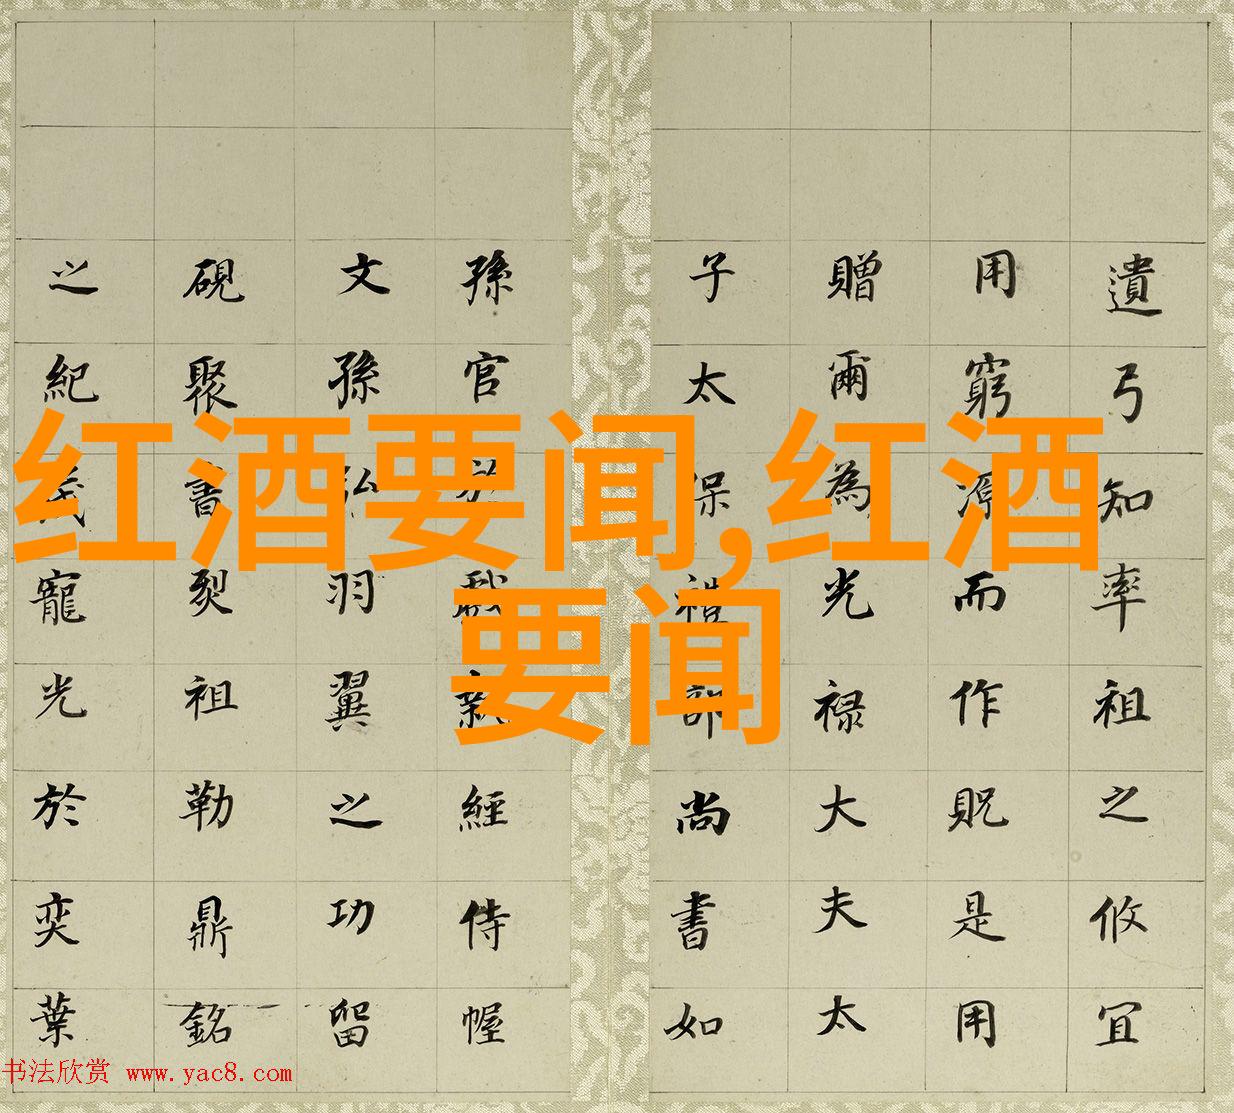 红酒要闻,红酒
要闻
遺弓知率祖之攸宜
用窮源而作貺是用
贈爾為光禄大夫太
子太保禮部尚書如
孫官於戲新經侍幄
文孫弘羽翼之功留
硯聚書裂祖勒鼎銘
之紀茂寵光於奕葉
书法欣赏 www.yac8.com